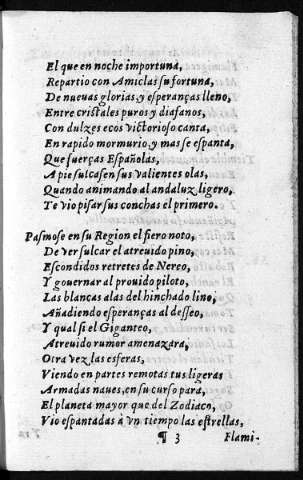 El que en noche importuna,
Repartio con Amiclas su fortuna,
De nueuas glorias, y esperanças lleno,
Entre cristales puros y diafanos,
Con dulzes ecos victorioso canta,
En rapido mormurio, y mas se espanta,
Que fuerças Españolas,
A pie sulcasen sus valientes olas,
Quando animando al andaluz ligero,
Te vio pisar sus conchas el primero.
Pasmose en su Region el fiero noto,
De ver sulcar el atreuido pino,
Escondidos retretes de Nereo,
Y gouernar al prouido piloto,
Las blancas alas del hinchado lino,
Añadiendo esperanças al desseo,
Y qual si el Giganteo,
Atreuido rumor amenazara,
Otra vez las esferas,
Viendo en partes remotas tus ligeras
Armadas naues, en su curso para,
El planeta mayor que del Zodiaco,
Vio espantadas à vn tiempo las estrellas,
¶ 3 Flami-